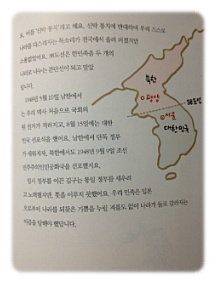 요. 이를 '신탁 통치'라고 해요. 신탁 통치에 반대하여 우리 스스로
나라를 다스리자는 목소리가 전국에서 울려 퍼졌지만
소용없었어요. 38도선은 한반도를 두 개의
나라로 나누는 분단선이 되고 말았
습니다.
1948년 5월 10일 남한에서
는 우리 역사 처음으로 국회의
원 선거가 치러지고, 8월 15일에는 대한
민국 선포식을 했어요. 남한에서 단독 정부
가 세워지자, 북한에서도 1948년 9월 9일 조선
민주주의인민공화국을 선포했지요.
임시 정부를 이끈 김구는 통일 정부를 세우려
고 노력했지만, 뜻을 이루지 못했어요. 우리 민족은 일본
으로부터 나라를 되찾은 기쁨을 누릴 겨를도 없이 나라가 둘로 갈라지는
아픔을 당해야 했답니다.
북한
평양
38도선
서울
대한민국